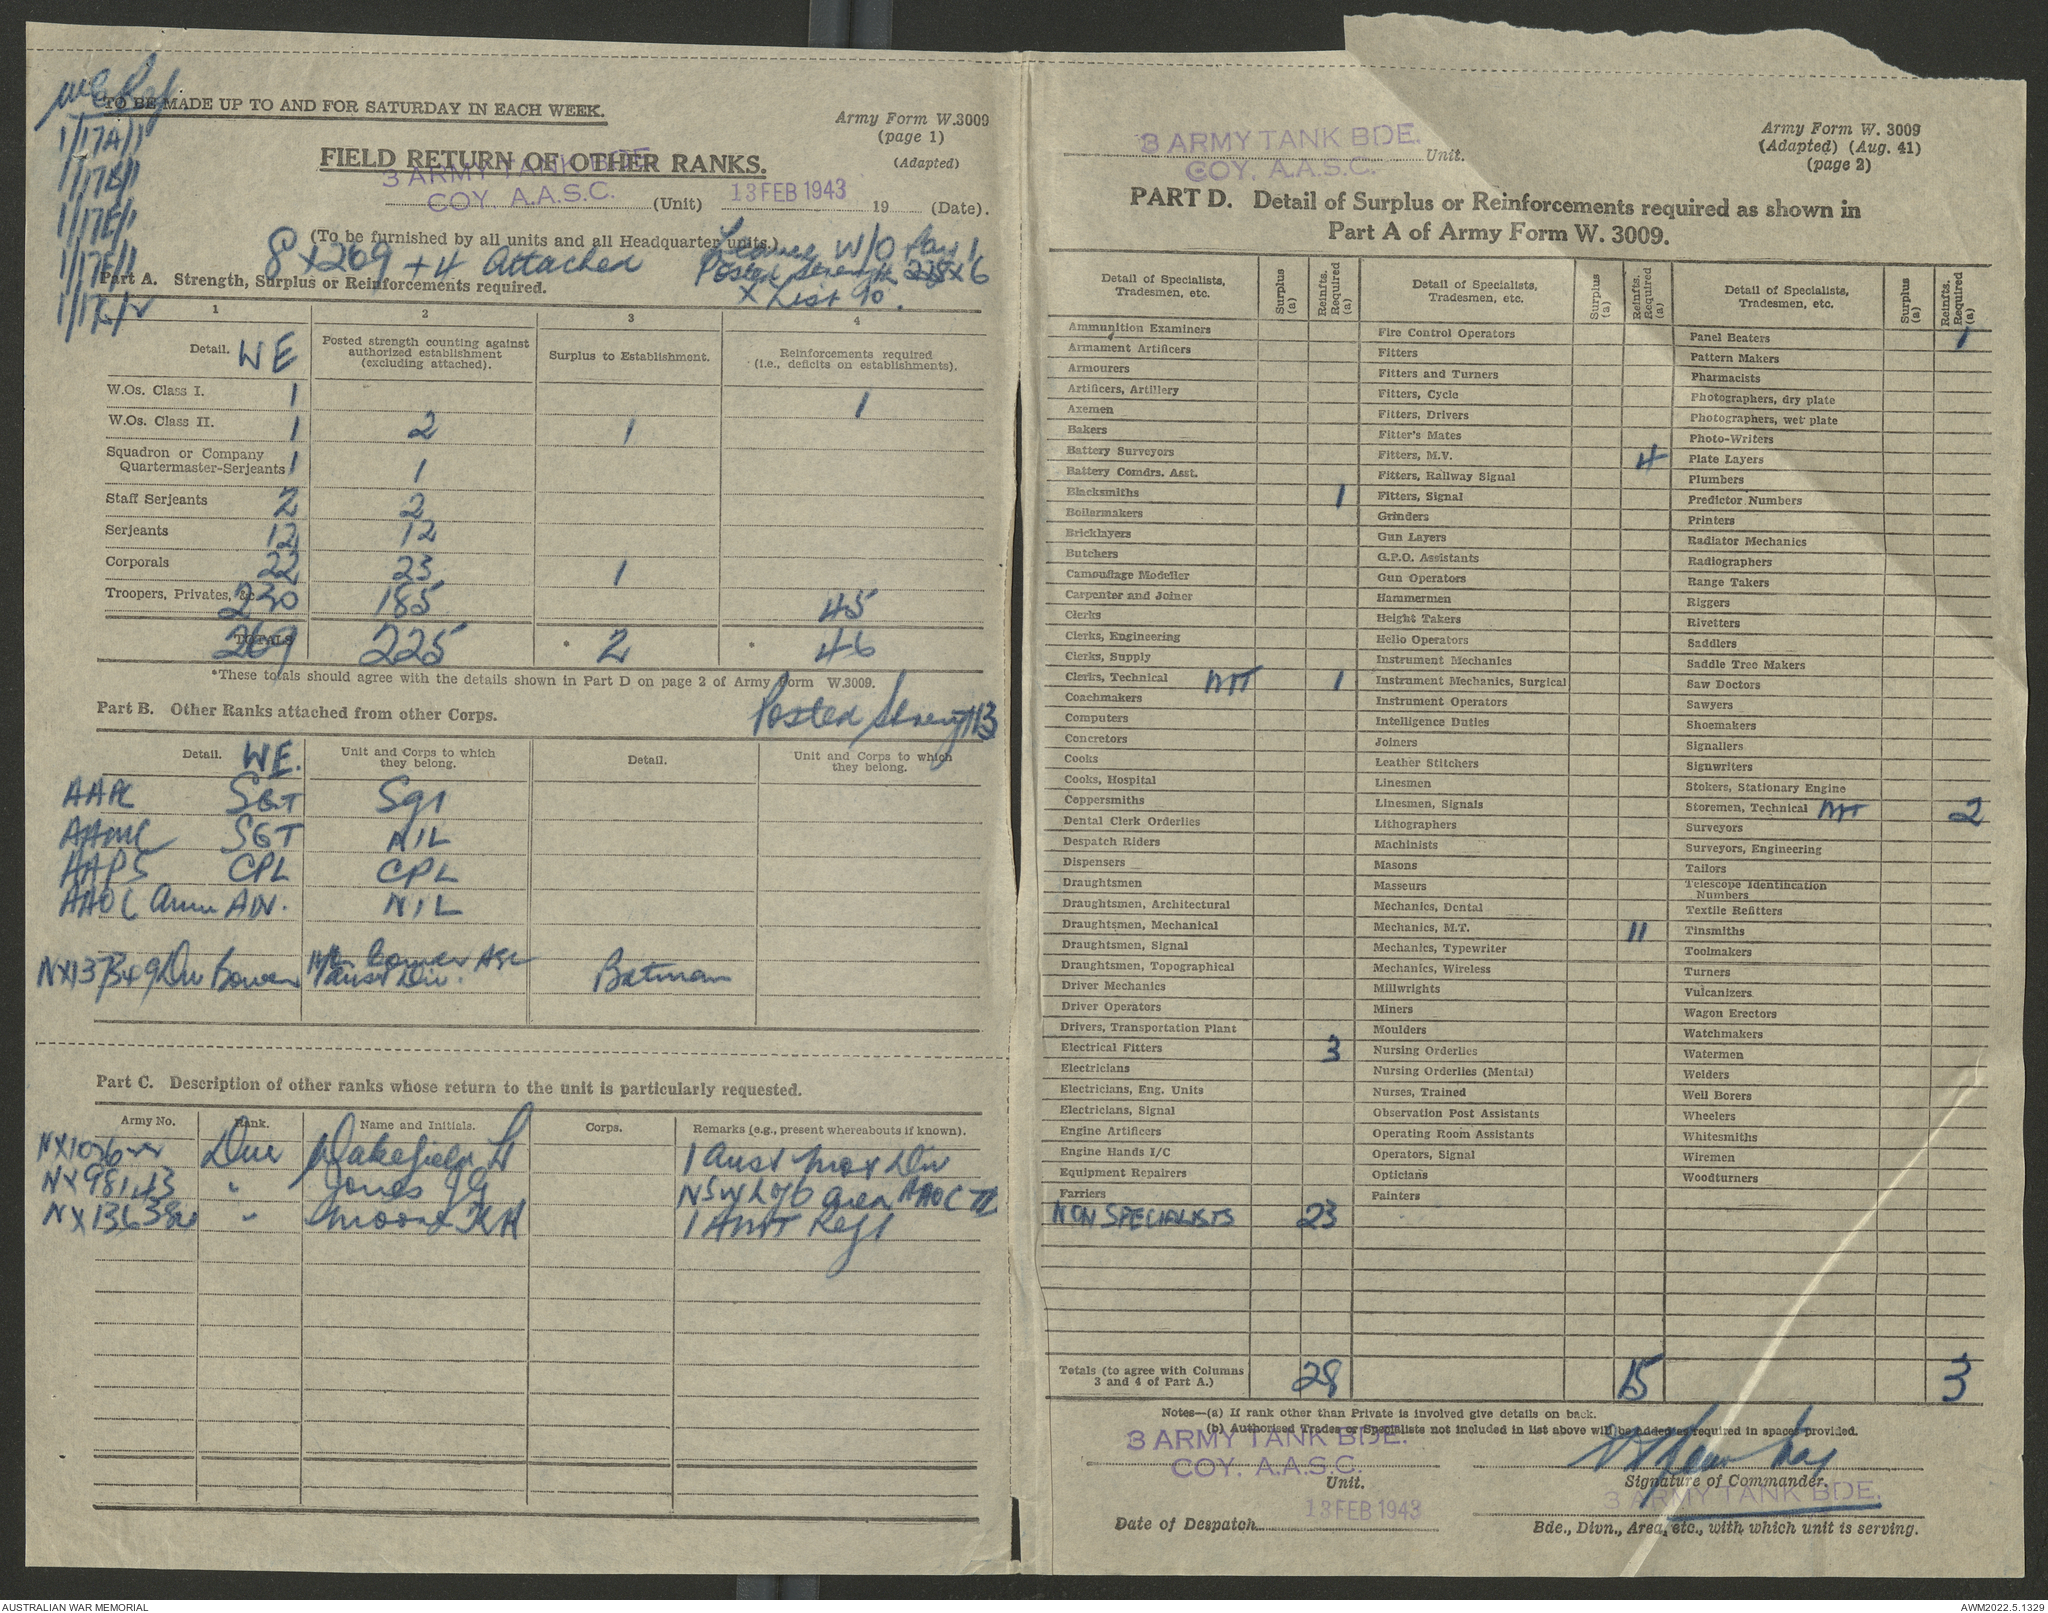 TO BE MADE UP TO AND FOR SATURDAY IN EACH WEEK.
1/17A/1
1/17B/1
1/17E/1
1/17F/1
Army Form W.3009
(page 1)
(Adapted)
FIELD RETURN OF OTHER RANKS.
3 ARMY TANK BDE
COY. A.A.S.C. (Unit) 13 FEB 1943 19 (Date).
(To be furnished by all units and all Headquarter units.)
8 x 269 + 4 Attached
Leave W/O Pay 1
Posted Strength 225 x 6
x List 90.
Part A. Strength, Surplus or Reinforcements required.
1 2 3 4
Detail. WE Posted strength counting against authorized establishment (excluding attached). Surplus to Establishment. Reinforcements required (i.e., deficits on establishments).
W.Os. Class I. 1 1
W.Os. Class II. 1 2 1
Squadron or Company Quartermaster-Serjeants 1 1
Staff Serjeants 2 2
Serjeants 12 12
Corporals 22 23 1
Troopers, Privates, &c. 230 185 45
TOTALS 269 225 * 2 * 46
*These totals should agree with the details shown in Part D on page 2 of Army Form W.3009.
Part B. Other Ranks attached from other Corps. Posted Strength 3
Detail. WE. Unit and Corps to which they belong. Detail. Unit and Corps to which they belong.
AAPC SGT Sgt
AAMC SGT NIL
AAPS CPL CPL
AAOC NIL
Dvr Bowen Aust Div. Batman
Part C. Description of other ranks whose return to the unit is particularly requested.
Army No. Rank. Name and Initials. Corps. Remarks (e.g., present whereabouts if known).
Dvr Wakefield 1 Aust Mot Div
NX98143 " Jones JG NSW L of C area AAOC
" Moore KH 1 Amt Regt
3 ARMY TANK BDE.
COY. A.A.S.C. Unit.
Army Form W. 3009
(Adapted) (Aug. 41)
(page 2)
PART D. Detail of Surplus or Reinforcements required as shown in
Part A of Army Form W. 3009.
Detail of Specialists, Tradesmen, etc. Surplus (a) Reinfts. Required (a)
Ammunition Examiners
Armament Artificers
Armourers
Artificers, Artillery
Axemen
Bakers
Battery Surveyors
Battery Comdrs. Asst.
Blacksmiths 1
Boilermakers
Bricklayers
Butchers
Camouflage Modeller
Carpenter and Joiner
Clerks
Clerks, Engineering
Clerks, Supply
Clerks, Technical MT 1
Coachmakers
Computers
Concretors
Cooks
Cooks, Hospital
Coppersmiths
Dental Clerk Orderlies
Despatch Riders
Dispensers
Draughtsmen
Draughtsmen, Architectural
Draughtsmen, Mechanical
Draughtsmen, Signal
Draughtsmen, Topographical
Driver Mechanics
Driver Operators
Drivers, Transportation Plant
Electrical Fitters 3
Electricians
Electricians, Eng. Units
Electricians, Signal
Engine Artificers
Engine Hands I/C
Equipment Repairers
Farriers
NON SPECIALISTS 23
Detail of Specialists, Tradesmen, etc. Surplus (a) Reinfts. Required (a)
Fire Control Operators
Fitters
Fitters and Turners
Fitters, Cycle
Fitters, Drivers
Fitter's Mates
Fitters, M.V. 4
Fitters, Railway Signal
Fitters, Signal
Grinders
Gun Layers
G.P.O. Assistants
Gun Operators
Hammermen
Height Takers
Helio Operators
Instrument Mechanics
Instrument Mechanics, Surgical
Instrument Operators
Intelligence Duties
Joiners
Leather Stitchers
Linesmen
Linesmen, Signals
Lithographers
Machinists
Masons
Masseurs
Mechanics, Dental
Mechanics, M.T. 11
Mechanics, Typewriter
Mechanics, Wireless
Millwrights
Miners
Moulders
Nursing Orderlies
Nursing Orderlies (Mental)
Nurses, Trained
Observation Post Assistants
Operating Room Assistants
Operators, Signal
Opticians
Painters
Detail of Specialists, Tradesmen, etc. Surplus (a) Reinfts. Required (a)
Panel Beaters 1
Pattern Makers
Pharmacists
Photographers, dry plate
Photographers, wet plate
Photo-Writers
Plate Layers
Plumbers
Predictor Numbers
Printers
Radiator Mechanics
Radiographers
Range Takers
Riggers
Rivetters
Saddlers
Saddle Tree Makers
Saw Doctors
Sawyers
Shoemakers
Signallers
Signwriters
Stokers, Stationary Engine
Storemen, Technical MT 2
Surveyors
Surveyors, Engineering
Tailors
Telescope Identification Numbers
Textile Refitters
Tinsmiths
Toolmakers
Turners
Vulcanizers
Wagon Erectors
Watchmakers
Watermen
Welders
Well Borers
Wheelers
Whitesmiths
Wiremen
Woodturners
Totals (to agree with Columns 3 and 4 of Part A.) 28 15 3
Notes—(a) If rank other than Private is involved give details on back.
(b) Authorised Trades or Specialists not included in list above will be added as required in spaces provided.
3 ARMY TANK BDE.
COY. A.A.S.C.
Unit.
Signature of Commander.
3 ARMY TANK BDE.
Date of Despatch 13 FEB 1943
Bde., Divn., Area, etc., with which unit is serving.
AUSTRALIAN WAR MEMORIAL
AWM2022.5.1329